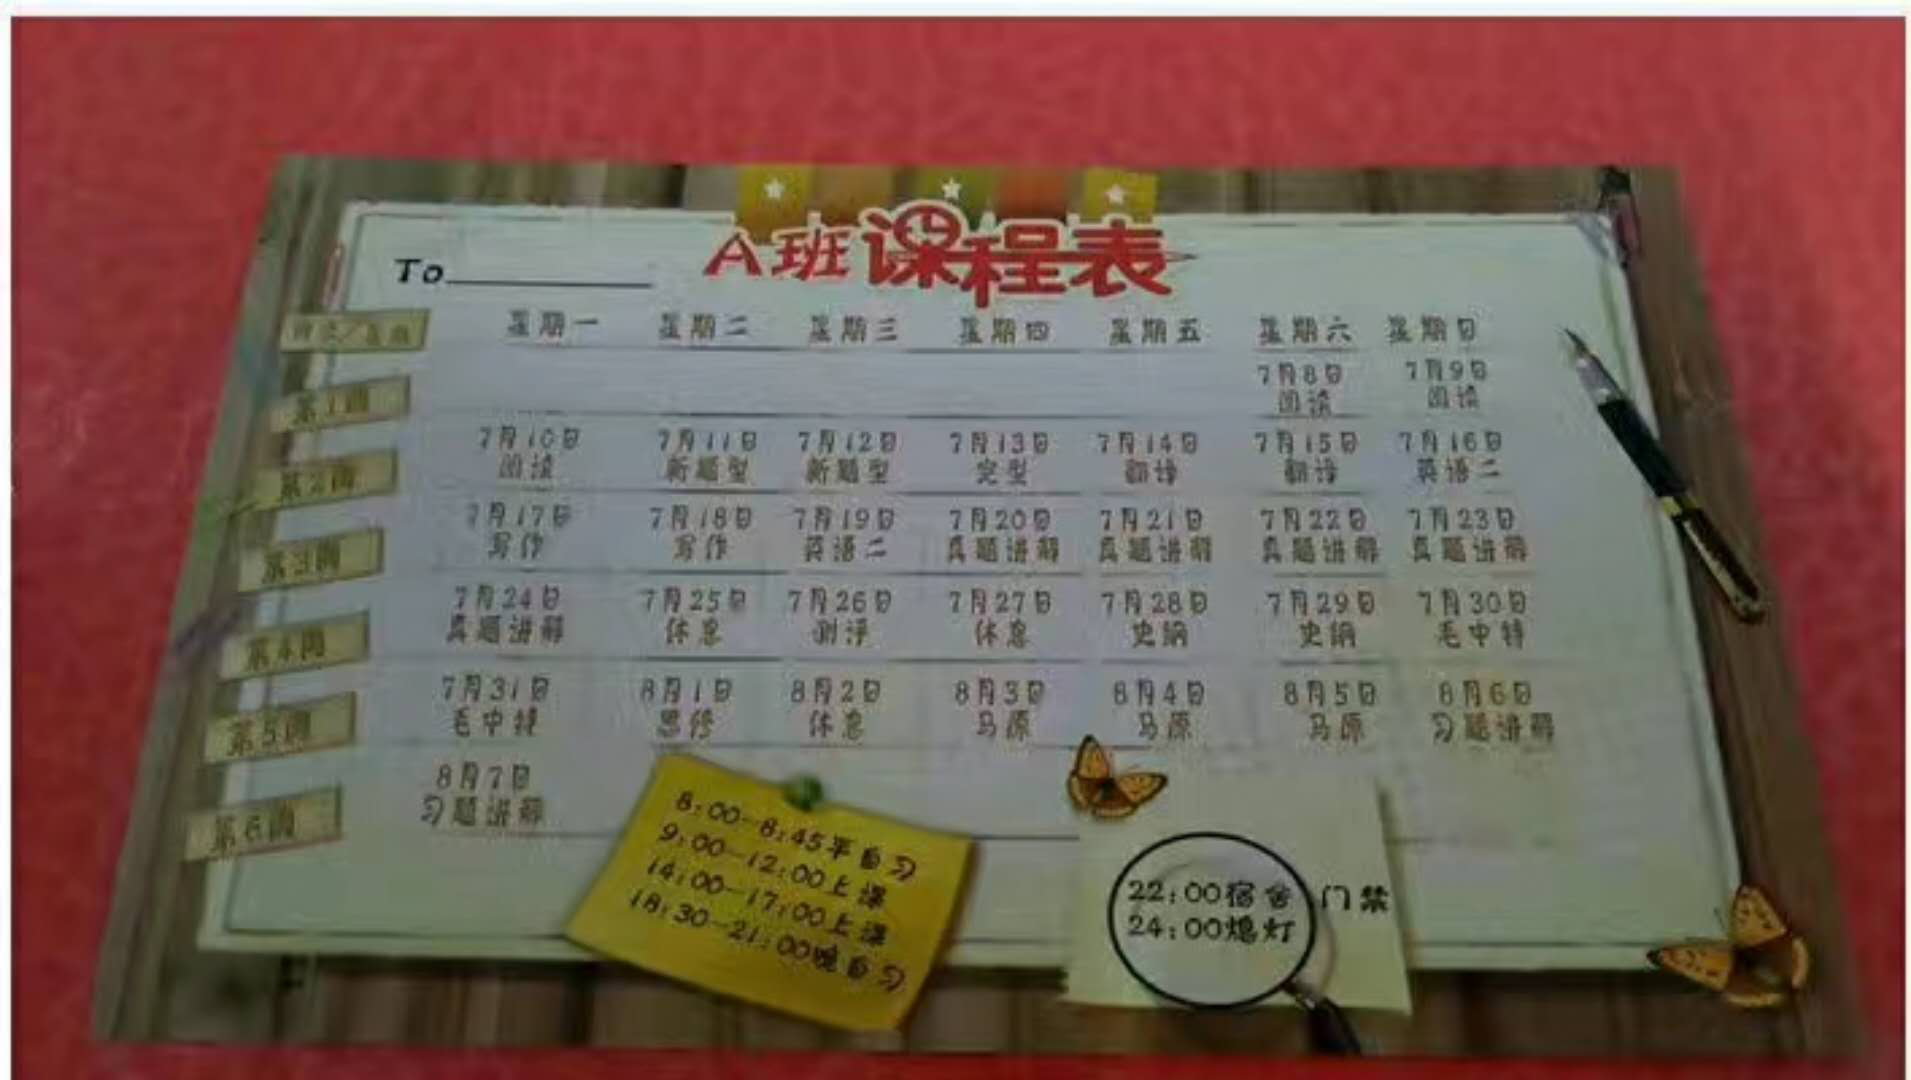 A班课程表
To
星期一 星期二 星期三 星期四 星期五 星期六 星期日
第1周
7月8日 7月9日
阅读 阅读
第2周
7月10日 7月11日 7月12日 7月13日 7月14日 7月15日 7月16日
阅读 新题型 新题型 完型 翻译 翻译 英语二
第3周
7月17日 7月18日 7月19日 7月20日 7月21日 7月22日 7月23日
写作 写作 英语二 真题讲解 真题讲解 真题讲解 真题讲解
第4周
7月24日 7月25日 7月26日 7月27日 7月28日 7月29日 7月30日
真题讲解 休息 测评 休息 史纲 史纲 毛中特
第5周
7月31日 8月1日 8月2日 8月3日 8月4日 8月5日 8月6日
毛中特 思修 休息 马原 马原 马原 习题讲解
第6周
8月7日
习题讲解
8:00-8:45早自习
9:00-12:00上课
14:00-17:00上课
18:30-21:00晚自习
22:00宿舍门禁
24:00熄灯